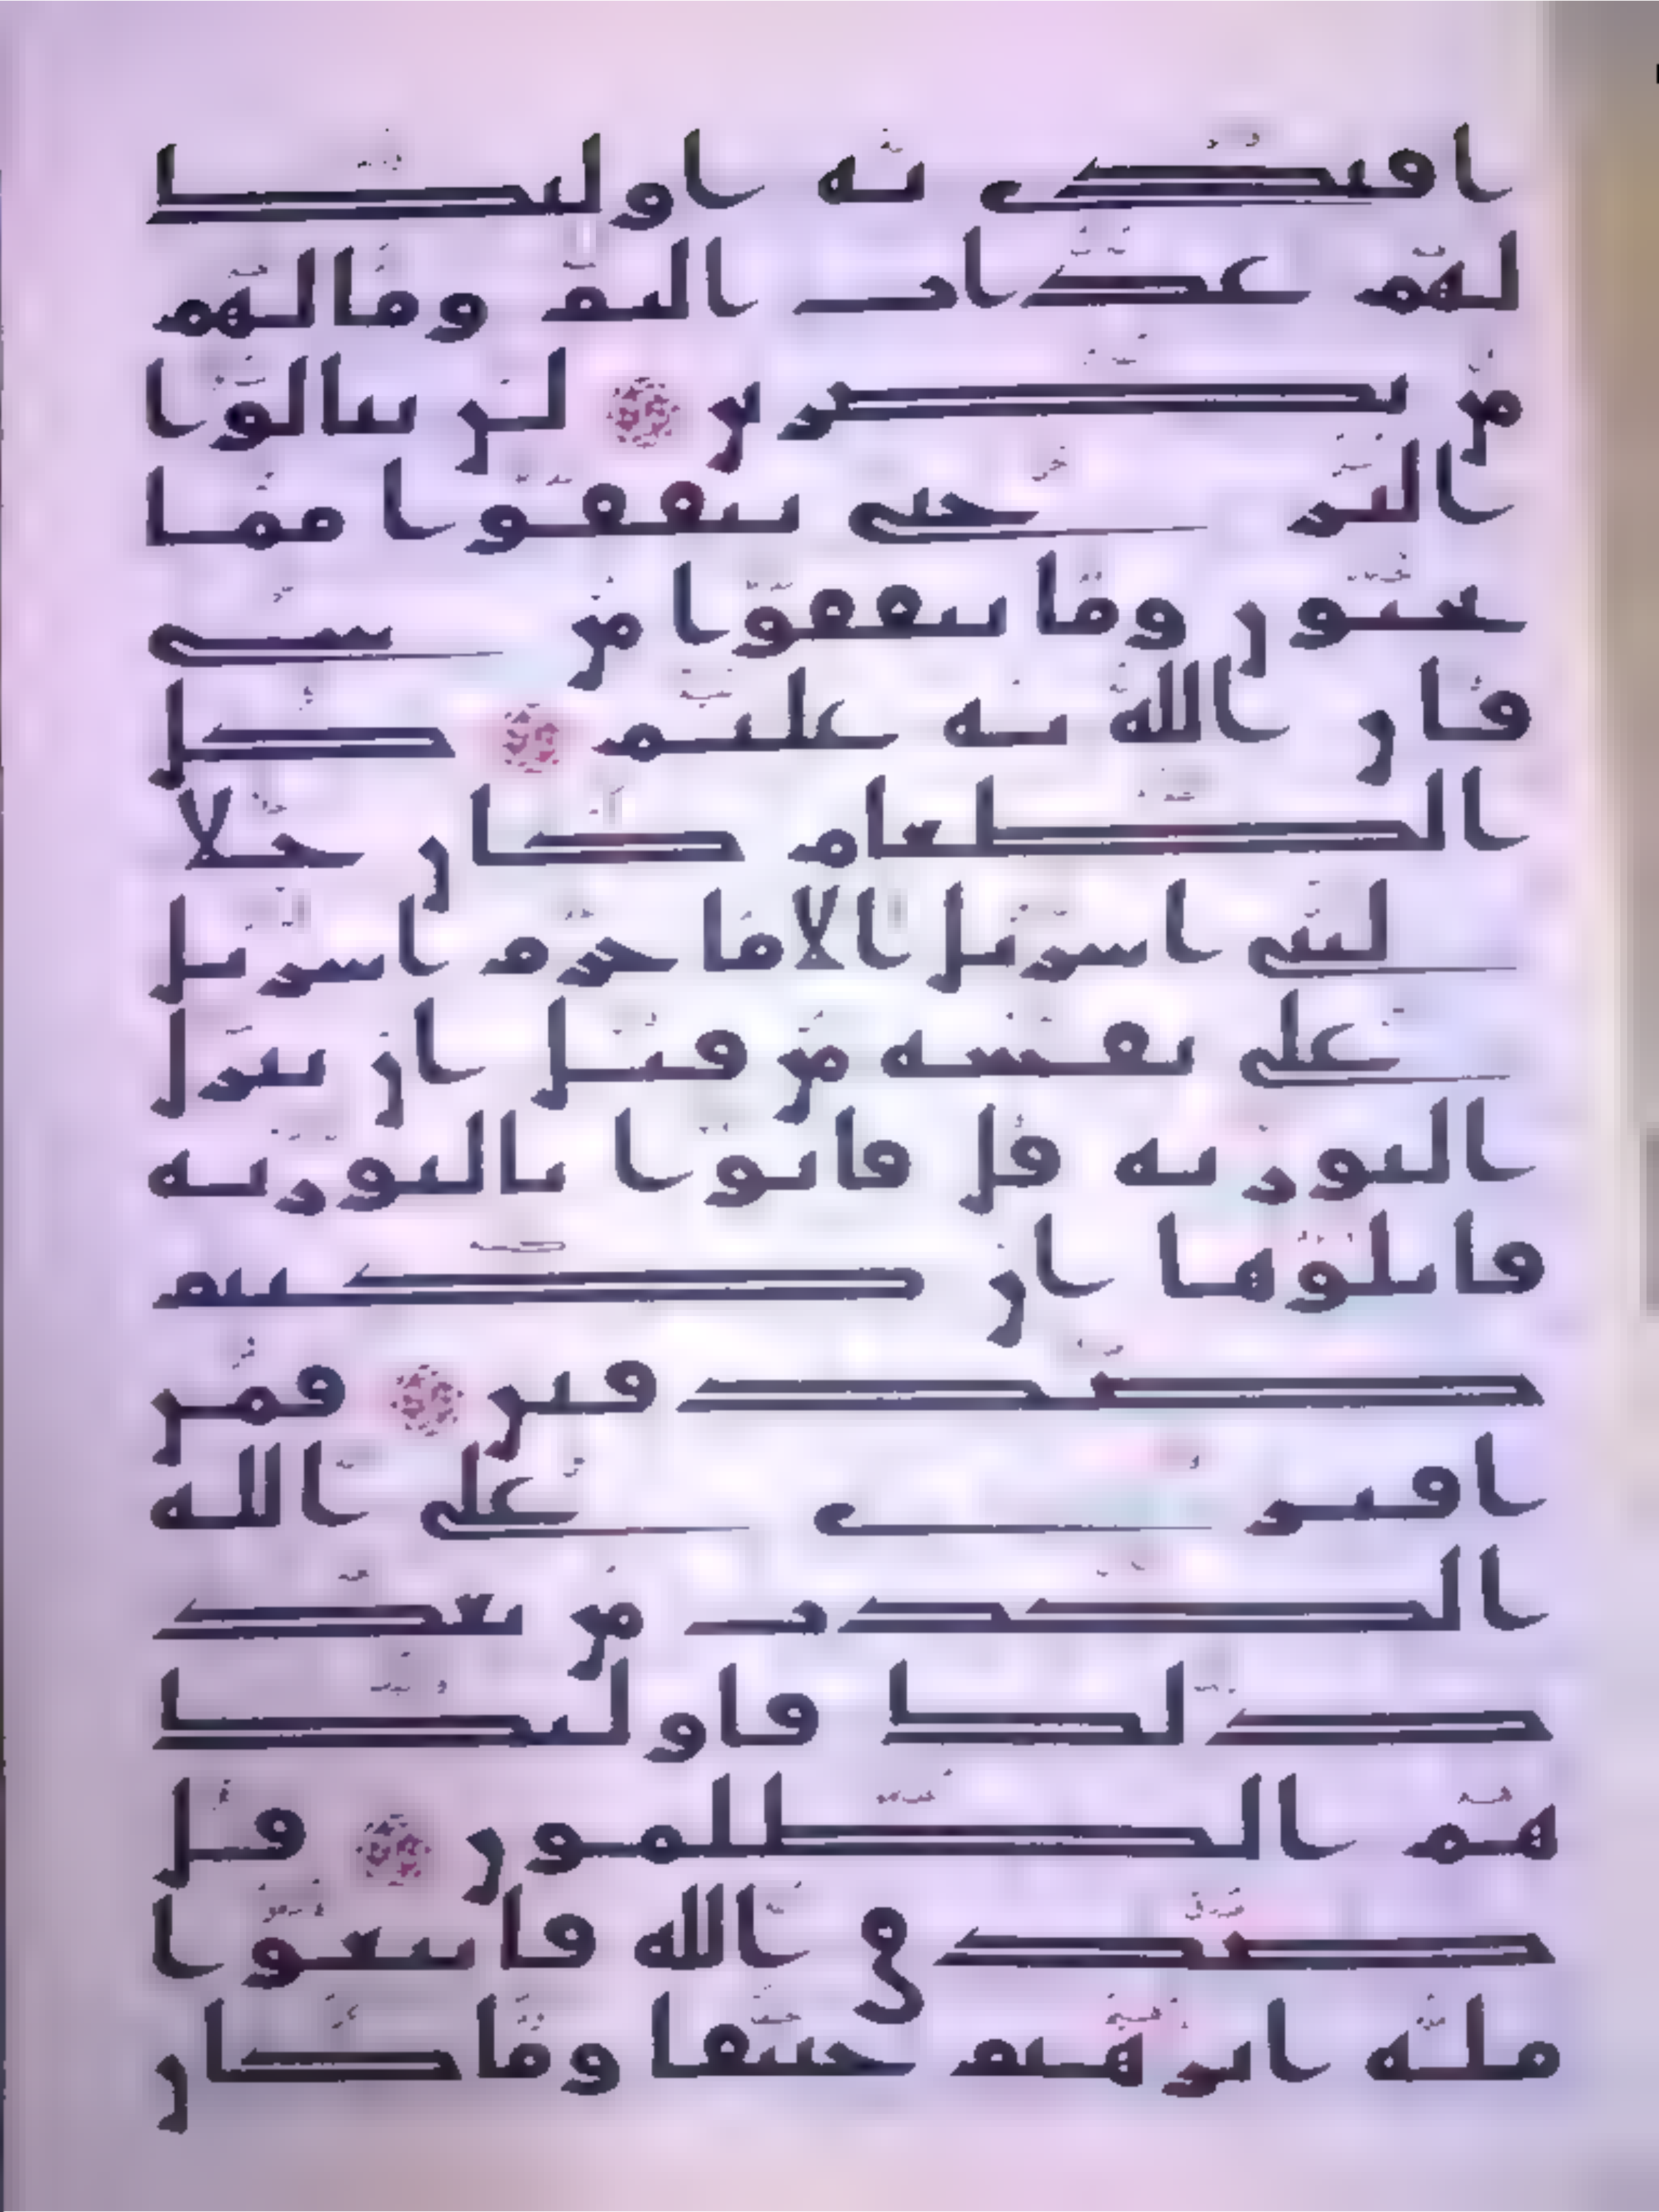 افتدى به اولئك
لهم عذاب اليم وما لهم
من نصرين لن تنالوا
البر حتى تنفقوا مما
تحبون وما تنفقوا من شى
فان الله به عليم كل
الطعام كان حلا
لبنى اسريل الا ما حرم اسريل
على نفسه من قبل ان تنزل
التوريه قل فاتوا بالتوريه
فاتلوها ان كنتم
صدقين فمن
افترى على الله
الكذب من بعد
ذلك فاولئك
هم الظلمون قل
صدق الله فاتبعوا
مله ابرهيم حنيفا وما كان